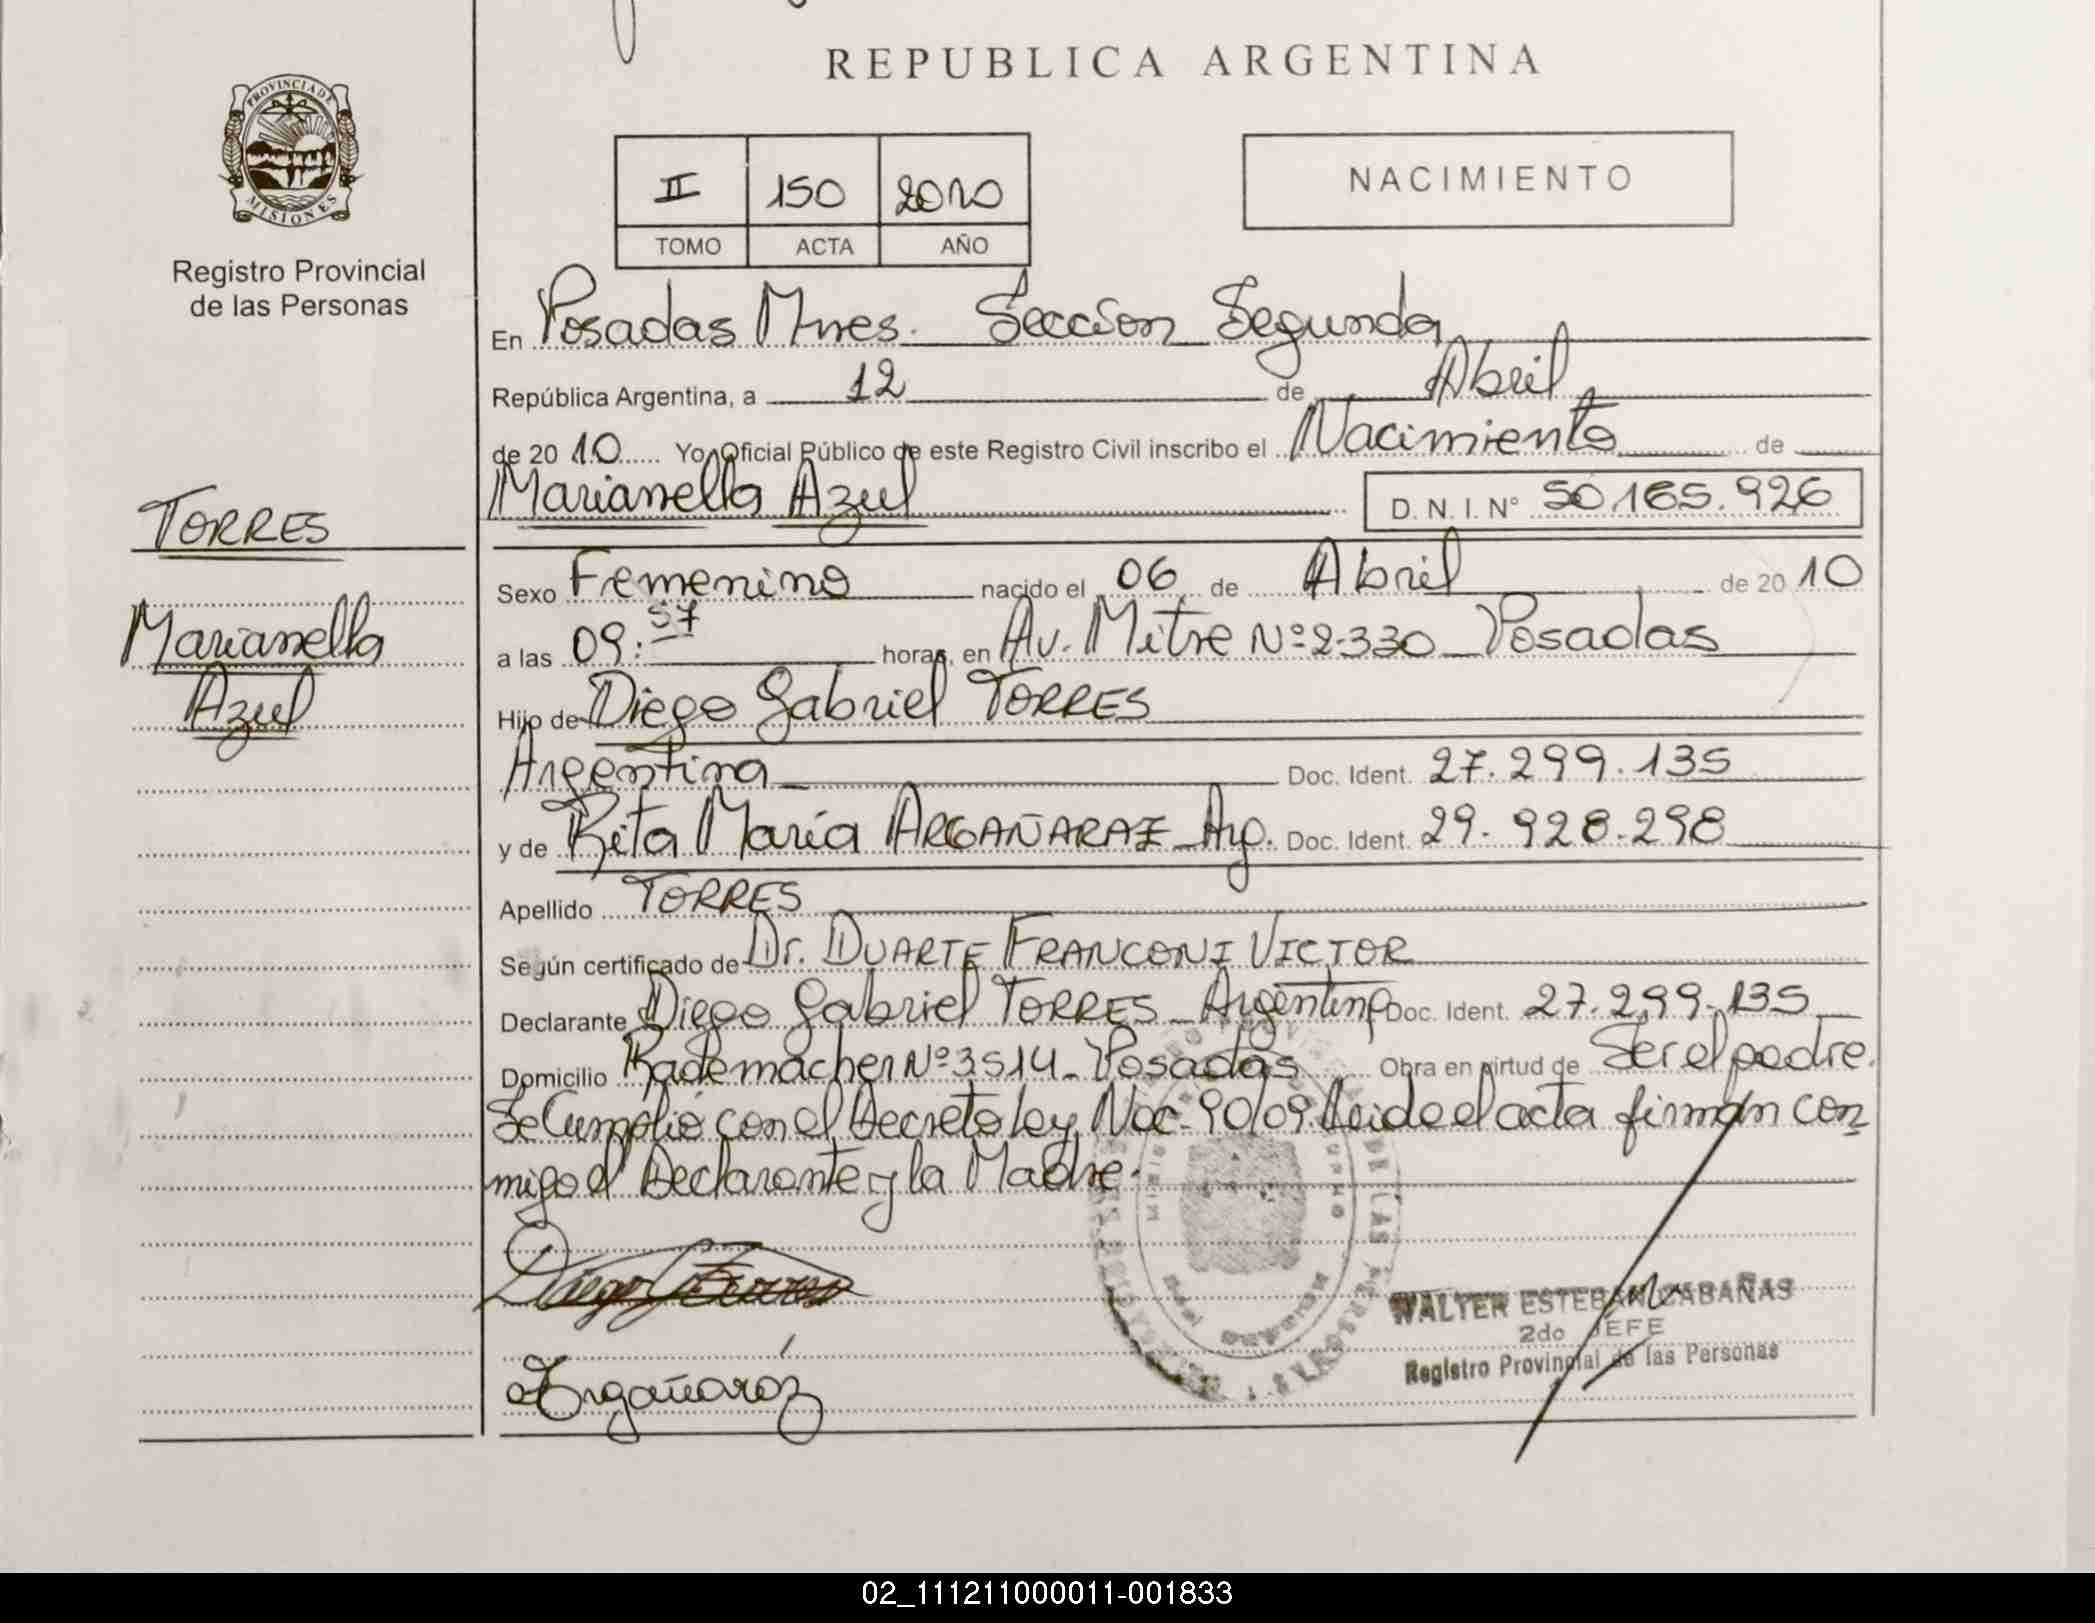 REPUBLICA ARGENTINA
PROVINCIA DE
MISIONES
Registro Provincial
de las Personas
II 150 2010
TOMO ACTA AÑO
NACIMIENTO
En Posadas Mnes. Seccion Segunda
República Argentina, a 12 de Abril
de 20 10 Yo, Oficial Público de este Registro Civil inscribo el Nacimiento de
Marianella Azul D. N. I. N° 50.165.926
TORRES
Marianella
Azul
Sexo Femenino nacido el 06 de Abril de 20 10
a las 09:57 horas, en Av. Mitre Nº 2330 Posadas
Hijo de Diego Gabriel TORRES
Argentina Doc. Ident. 27.299.135
y de Rita María ARGAÑARAZ Arg. Doc. Ident. 29.928.298
Apellido TORRES
Según certificado de Dr. DUARTE FRANCONI VICTOR
Declarante Diego Gabriel TORRES Argentino Doc. Ident. 27.299.135
Domicilio Rademacher Nº 3514 Posadas Obra en virtud de Ser el padre.
Se Cumplió con el Decreto ley Nac. 90/09 Leida el acta firman con
migo el Declarante y la Madre.
Diego Torres
Argañaráz
WALTER ESTEBAN CABAÑAS
2do JEFE
Registro Provincial de las Personas
02_111211000011-001833